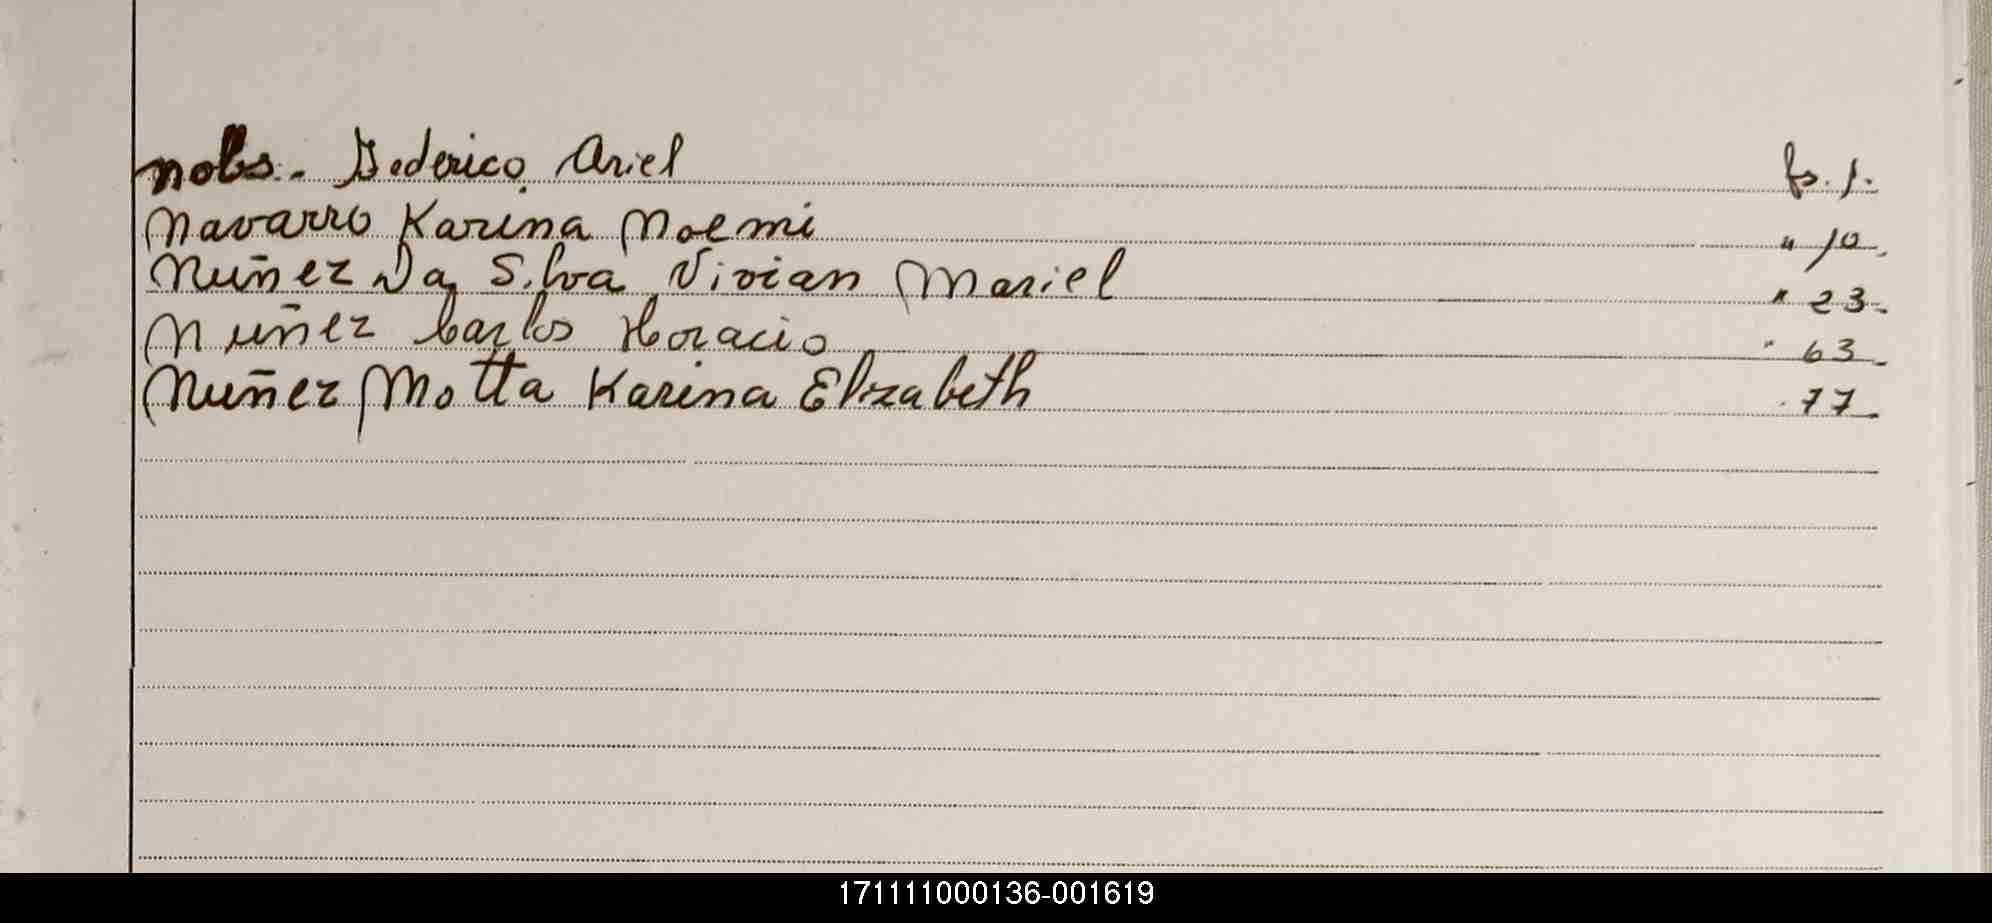 Nobs. Federico Ariel fs. 1.
Navarro Karina Noemi " 10.
Nuñez Da Silva Vivian Mariel " 23.
Nuñez Carlos Horacio " 63
Nuñez Motta Karina Elizabeth " 77
171111000136-001619